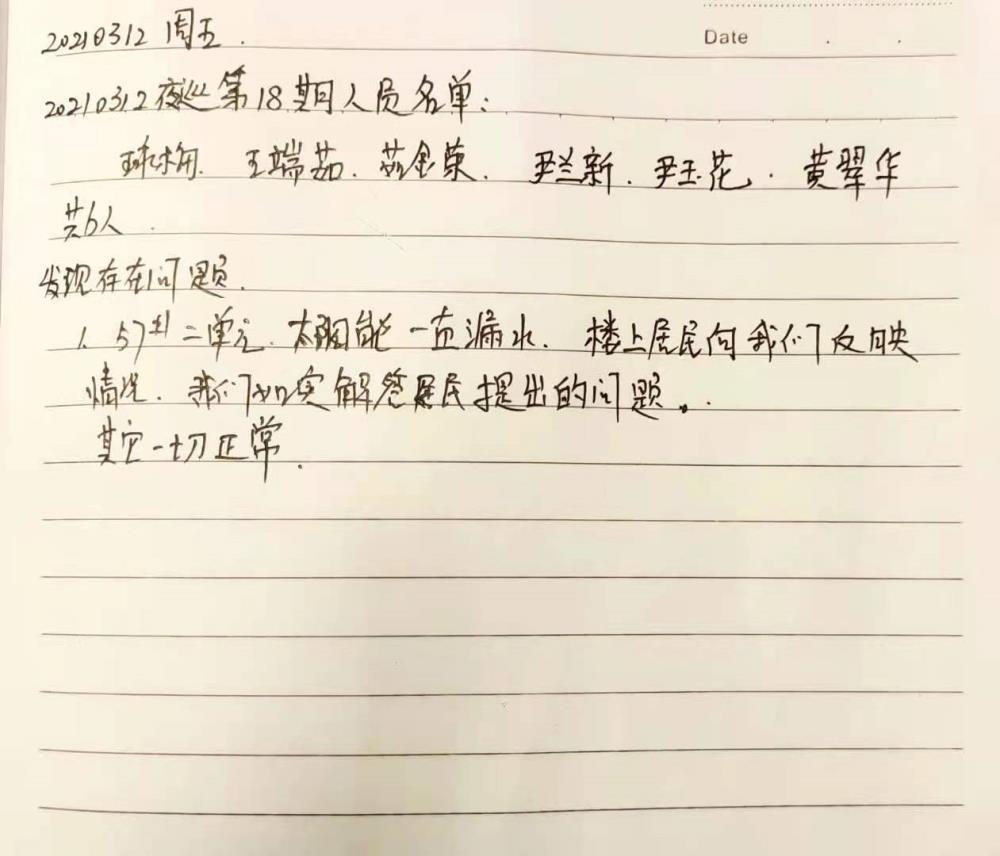 20210312 周五.
Date
20210312夜巡第18期人员名单:
王端茹. 茹金荣. 尹兰新. 尹玉花. 黄翠华
共6人.
发现存在问题.
1. 57#二单元. 太阳能一直漏水. 楼上居民向我们反映
情况. 我们如实解答居民提出的问题。.
其它一切正常.